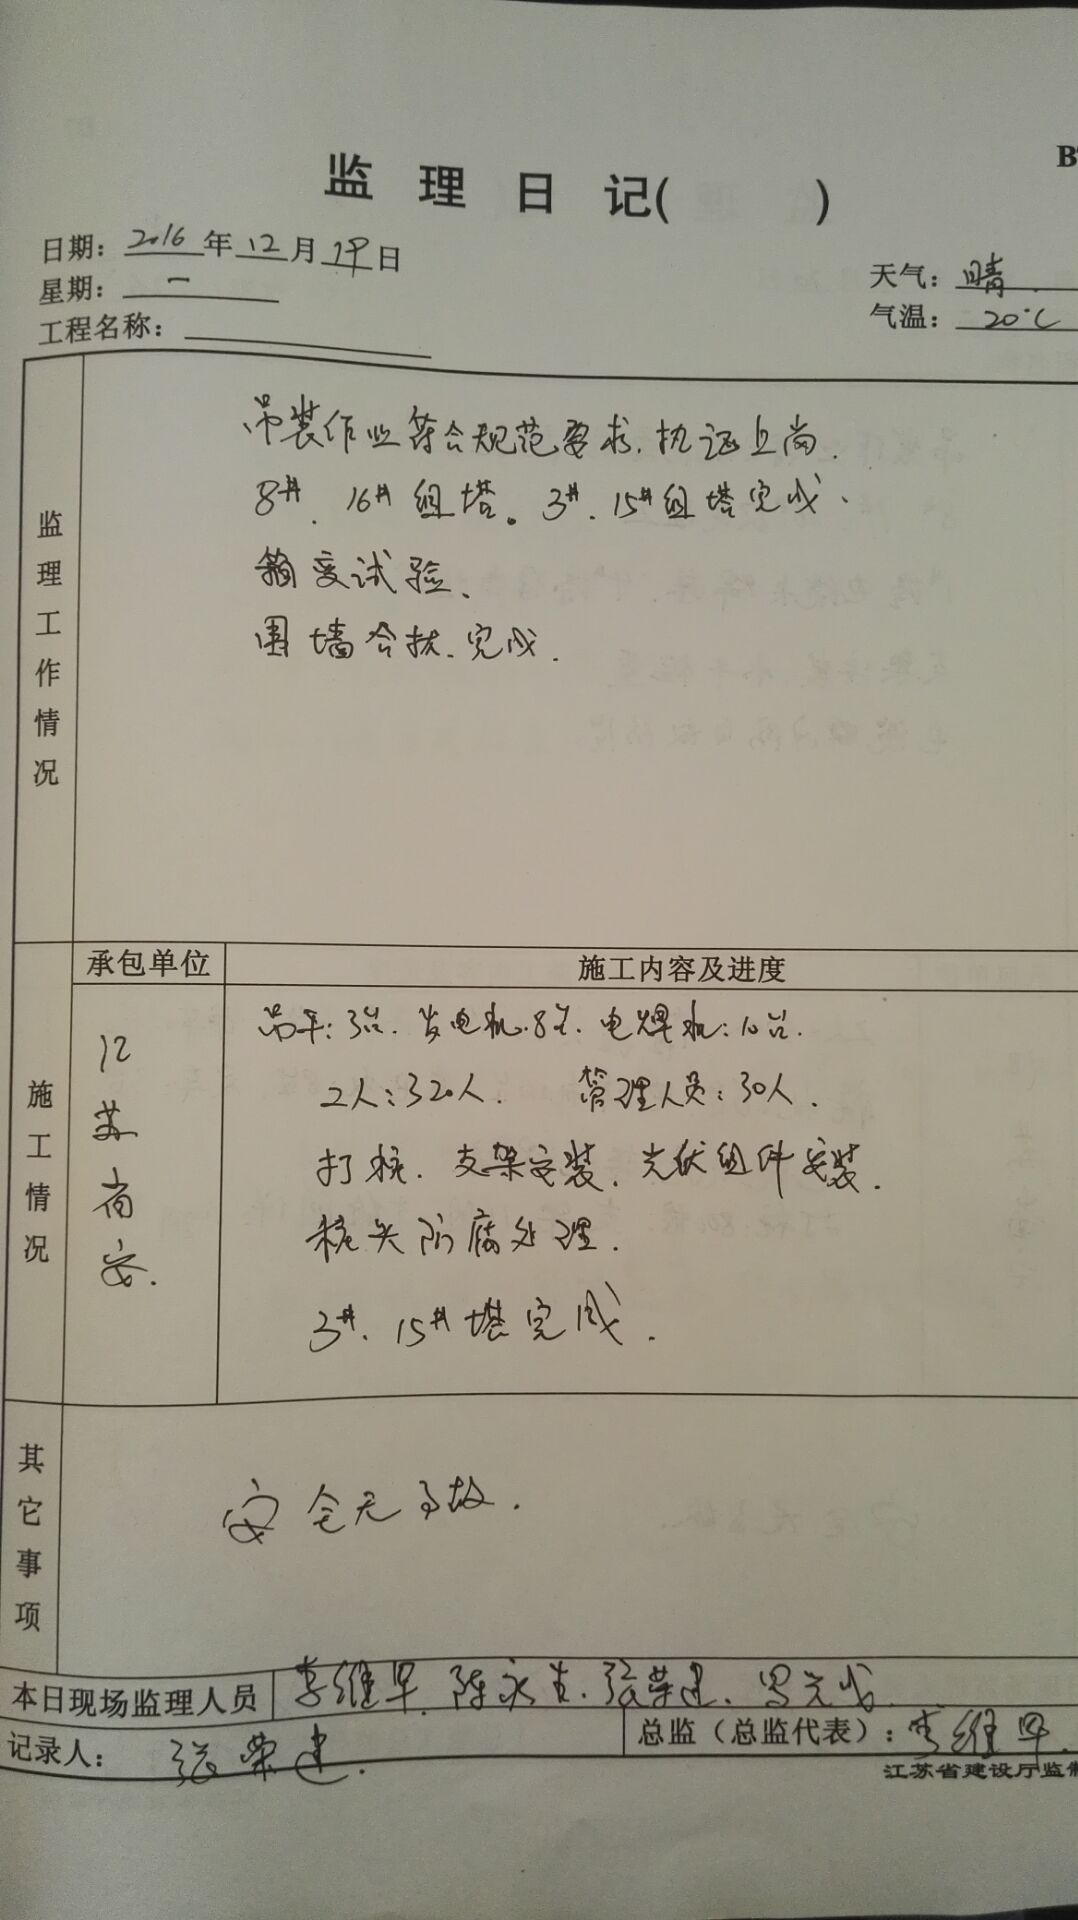 B
监 理 日 记( )
日期: 2016 年 12 月 19 日
星期: 一
天气: 晴.
气温: 20℃
工程名称:
监理工作情况
吊装作业符合规范要求. 执证上岗.
8#. 16#组塔。3#. 15#组塔完成.
箱变试验、
围墙合扶. 完成.
施工情况
承包单位
施工内容及进度
江苏尚安.
吊车: 3台. 发电机: 8台. 电焊机: 10台.
工人: 320人. 管理人员: 30人.
打桩. 支架安装. 光伏组件安装.
桩头防腐处理.
3#. 15#塔完成.
其它事项
安全无事故.
本日现场监理人员 李维早. 陈永吉. 张荣建.
记录人: 张荣建.
总监（总监代表）: 李维早.
江苏省建设厅监制